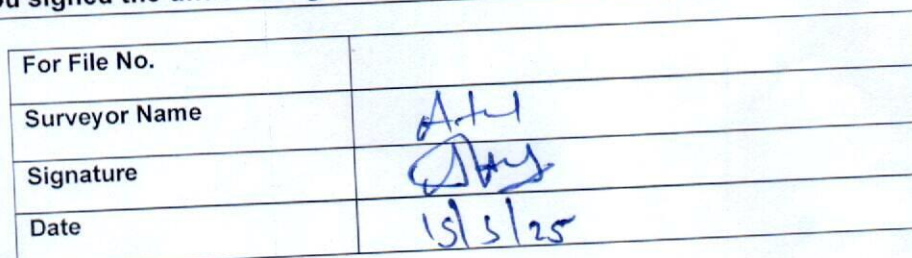 signed the
For File No.
Surveyor Name Atul
Signature
Date 15/5/25